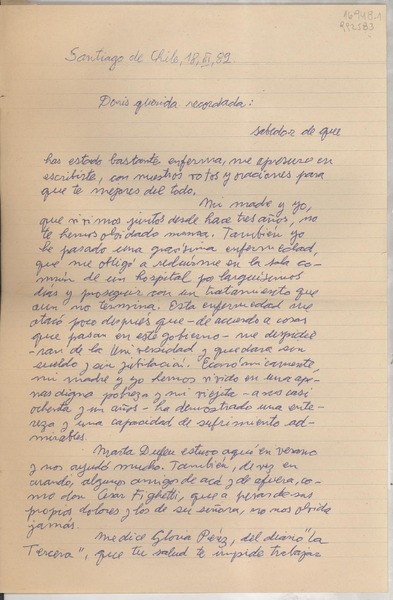 16948.1
992583
Santiago de Chile, 18, III, 82
Doris querida recordada:
Sabedor de que
has estado bastante enferma, me apresuro en
escribirte, con nuestros votos y oraciones para
que te mejores del todo.
Mi madre y yo,
que vivimos juntos desde hace tres años, no
te hemos olvidado nunca. También yo
he pasado una gravísima enfermedad,
que me obligó a recluirme en la sala co-
mún de un hospital por larguísimos
días y proseguir con un tratamiento que
aun no termina. Esta enfermedad me
atacó poco después que - de acuerdo a cosas
que pasan en este gobierno - me despidie-
ran de la Universidad y quedara sin
sueldo y sin jubilación. Económicamente,
mi madre y yo hemos vivido en una ape-
nas digna pobreza y mi viejita - a sus casi
ochenta y un años - ha demostrado una ente-
reza y una capacidad de sufrimiento ad-
mirables.
Marta estuvo aquí en verano
y nos ayudó mucho. También, de vez en
cuando, algunos amigos de acá y de afuera, co-
mo don César Fighetti, que a pesar de sus
propios dolores y los de su señora, no nos olvida
jamás.
Me dice Gloria Pérez, del diario "La
Tercera", que tu salud te impide trabajar